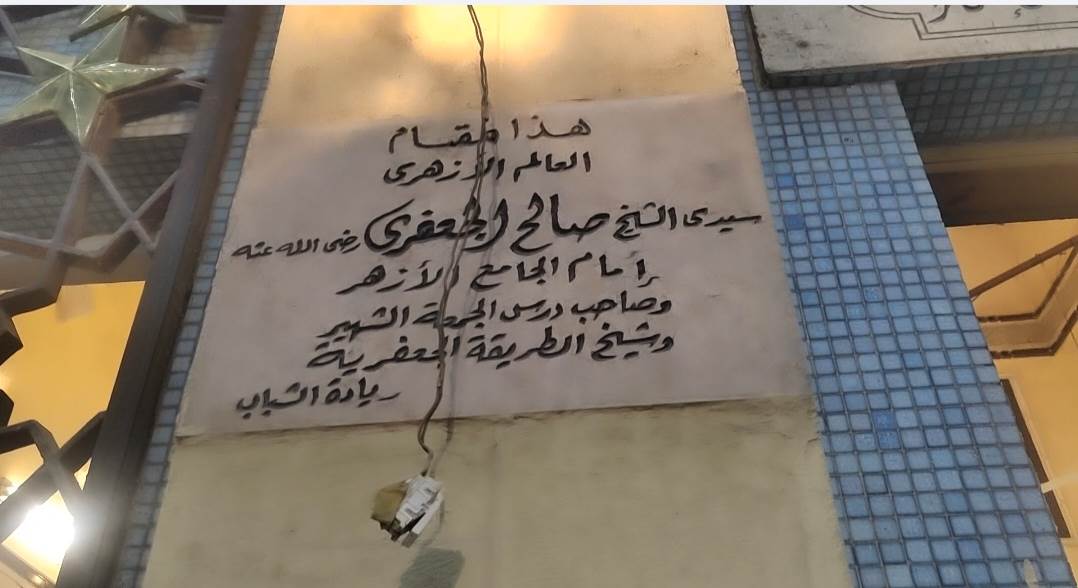 هذا مقام
العالم الأزهرى
سيدى الشيخ صالح الجعفرى رضى الله عنه
إمام الجامع الأزهر
وصاحب درس الجمعة الشهير
وشيخ الطريقة الجعفرية
ريادة الشباب